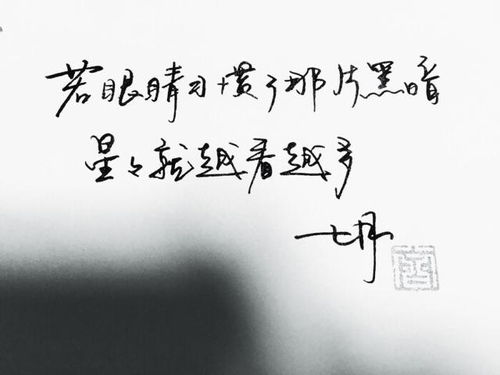 若眼睛习惯了那片黑暗
星々就越看越多
七月